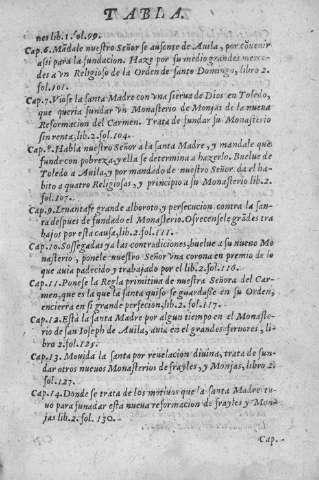 TABLA.
nes lib. 1. fol. 99.
Cap. 6. Mãdale nuestro Señor se ausente de Auila, por cõuenir
assi para la fundacion. Haze por su medio grandes merce-
des a vn Religioso de la Orden de santo Domingo, libro 2.
fol. 101.
Cap. 7. Viose la santa Madre con vna sierua de Dios en Toledo,
que queria fundar vn Monasterio de Monjas de la nueua
Reformacion del Carmen. Trata de fundar su Monasterio
sin renta, lib. 2. fol. 104.
Cap. 8. Habla nuestro Señor a la santa Madre, y mandale que
funde con pobreza, y ella se determina a hazerlo. Buelue de
Toledo a Auila, y por mandado de nuestro Señor da el ha-
bito a quatro Religiosas, y principio a su Monasterio lib. 2.
fol. 107.
Cap. 9. Leuantase grande alboroto, y persecucion contra la san-
ta despues de fundado el Monasterio. Ofrecensele grãdes tra
bajos por esta causa, lib. 2. fol. 111.
Cap. 10. Sossegadas ya las contradiciones, buelue a su nueuo Mo
nasterio, ponele nuestro Señor vna corona en premio de lo
que auia padecido y trabajado por el lib. 2. fol. 116.
Cap. 11. Ponese la Regla primitiua de nuestra Señora del Car-
men, que es la que la santa quiso se guardasse en su Orden,
encierra en si grande perfecion, lib. 2. fol. 117.
Cap. 12. Està la santa Madre por algun tiempo en el Monaste-
rio de san Ioseph de Auila, auia en el grandes feruores, li-
bro 2. fol. 125.
Cap. 13. Mouida la santa por reuelacion diuina, trata de fun-
dar otros nueuos Monasterios de frayles, y Monjas, libro 2.
fol. 127.
Cap. 14. Donde se trata de los motiuos que la santa Madre tu-
uo para funadar esta nueua reformacion de frayles y Mon-
jas lib. 2. fol. 130.
Cap.